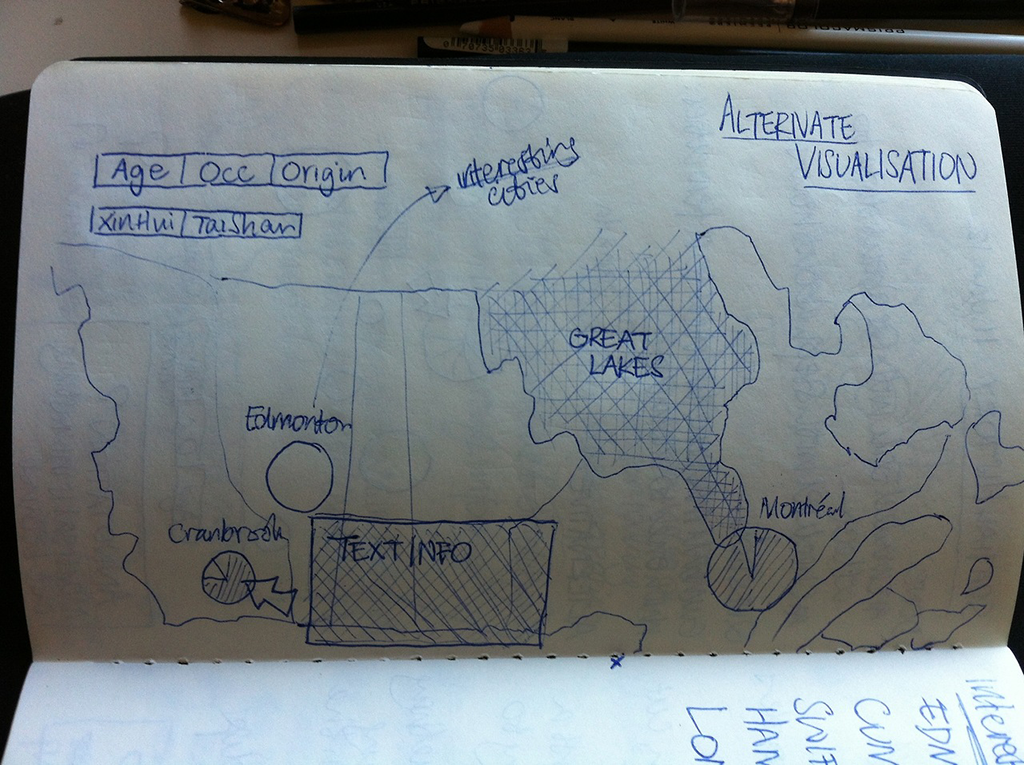 ALTERNATE
VISUALISATION
Age | Occ | Origin
XinHui | TaiShan
interesting
cities
GREAT
LAKES
Edmonton
Cranbrook
TEXT INFO
Montréal
x
EDN
CUN
SWIF
HAN
LO